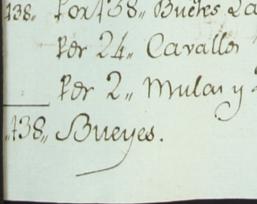 438. Por 438,, Bueyes La
Per 24,, Cavallos
Per 2,, Mulas y
,,438,, Bueyes.